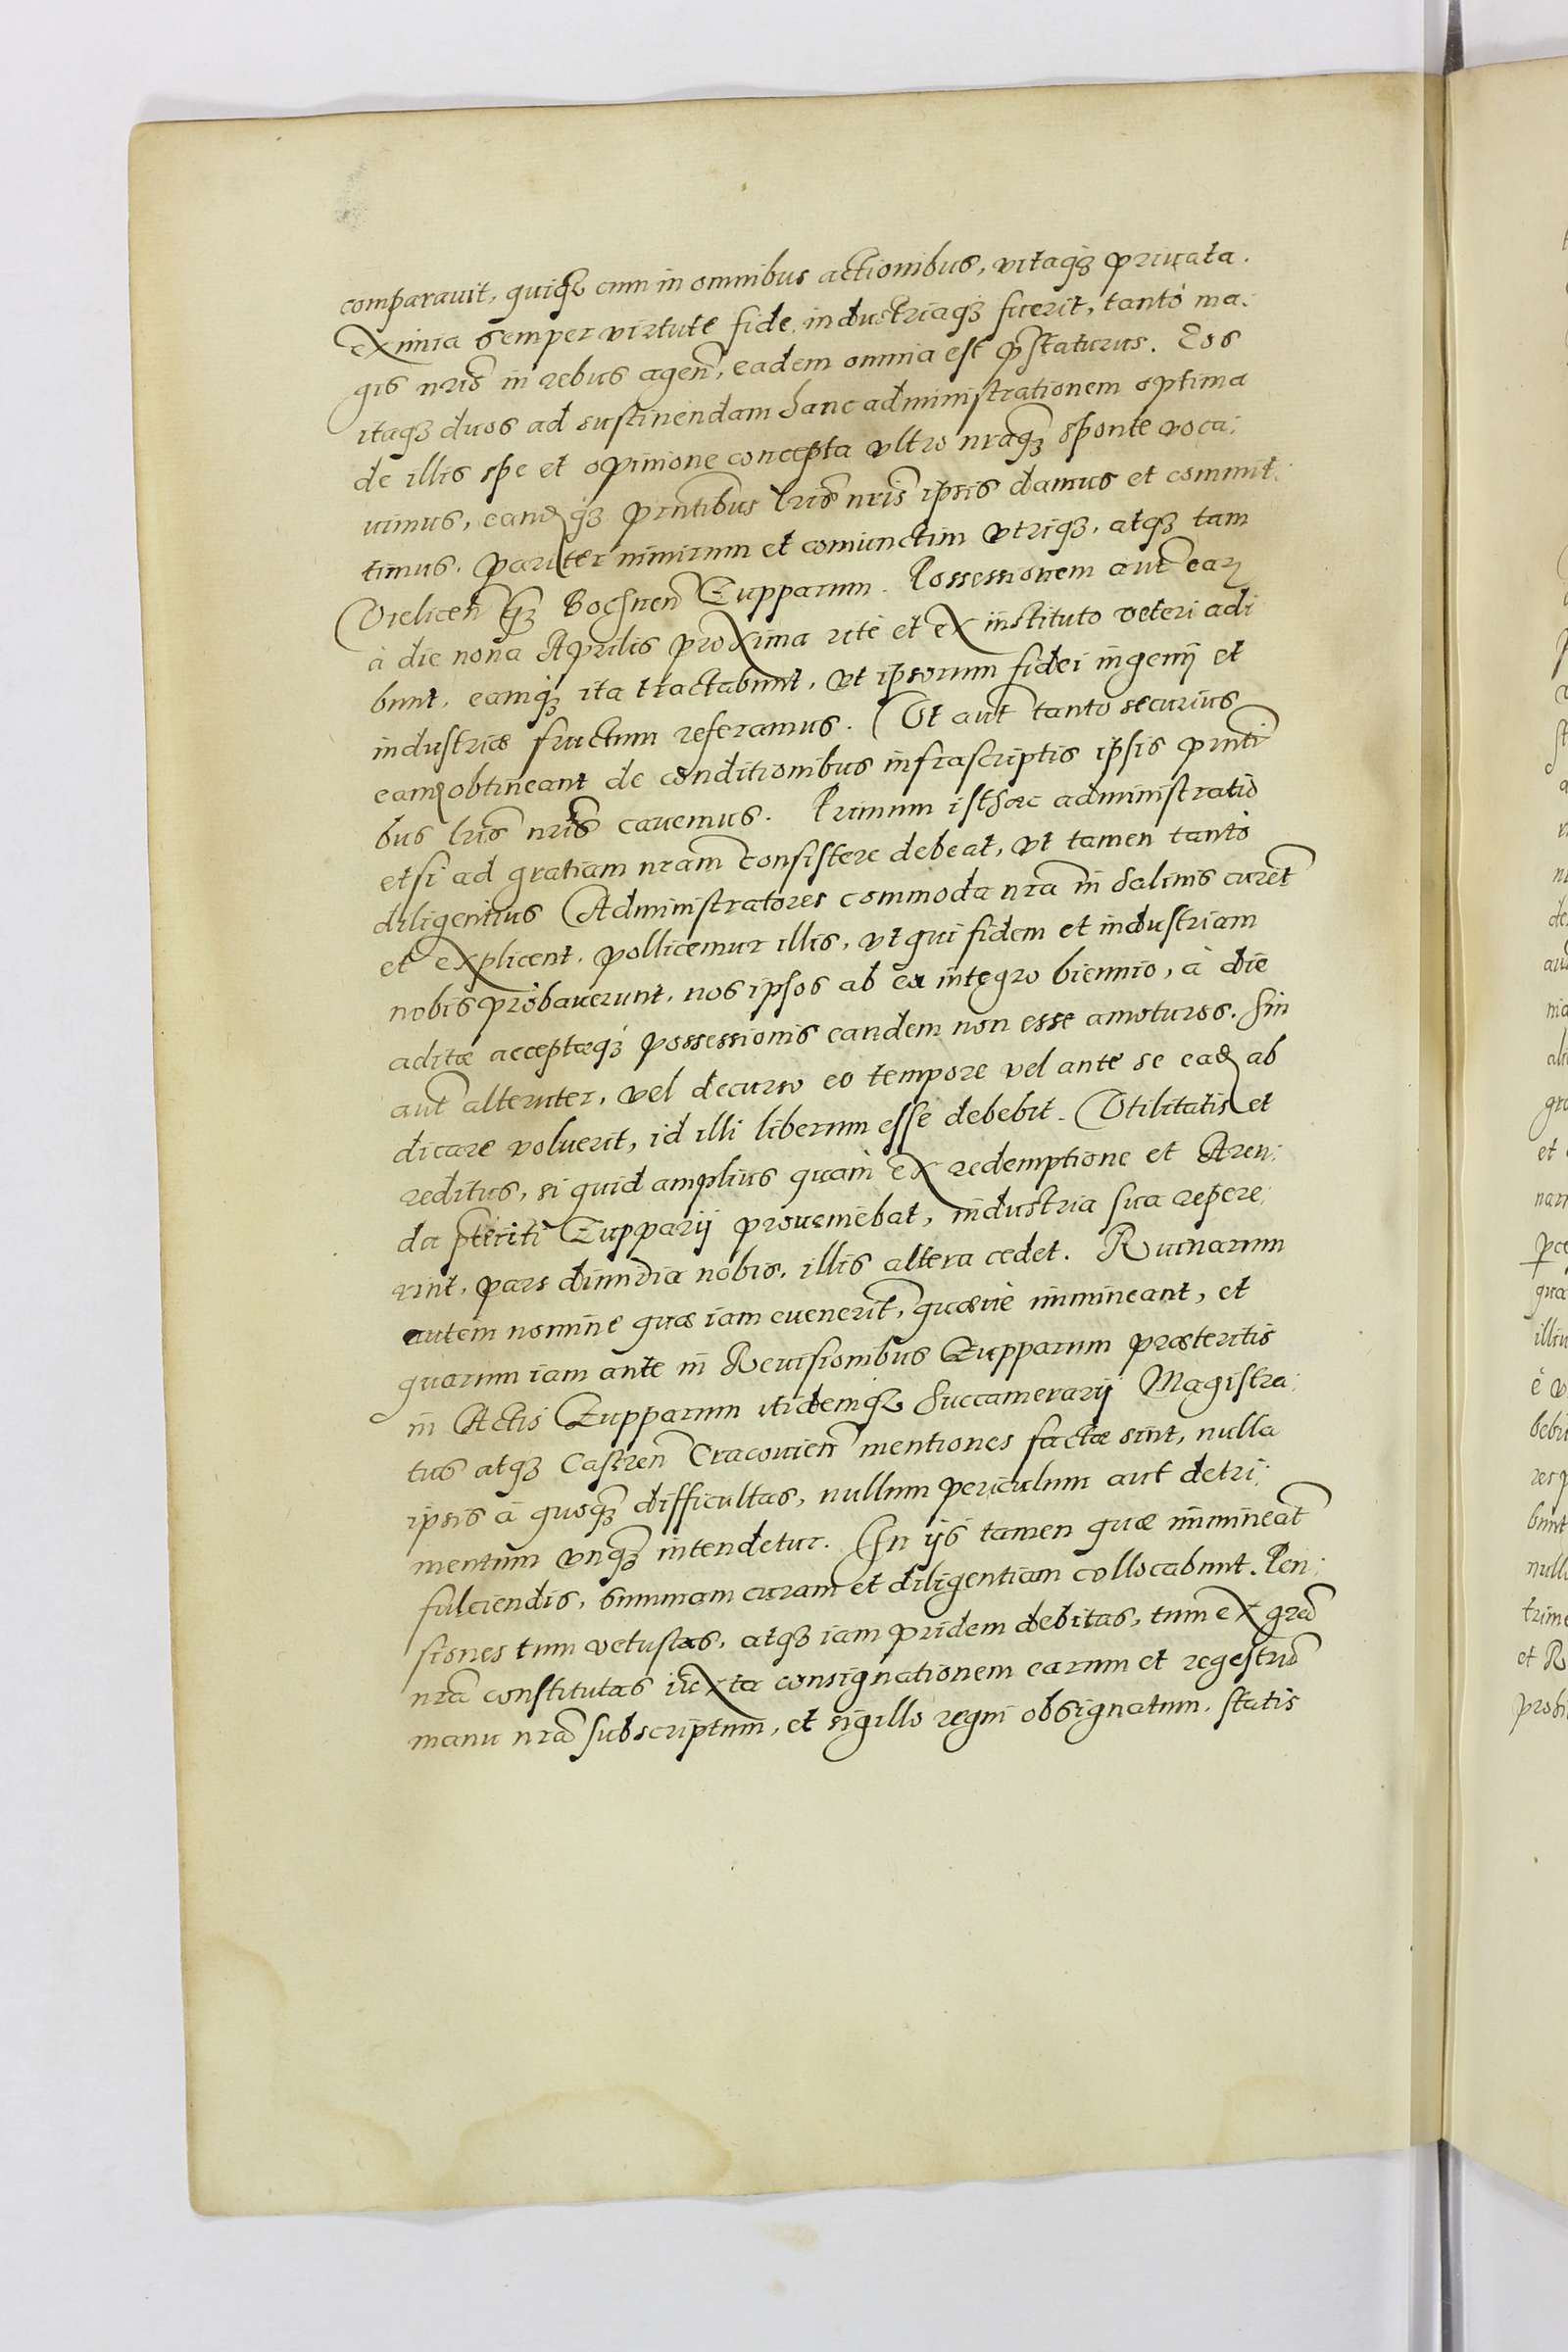 comparavit, quiq₃ cum in omnibus actionibus, vitaq₃ privata.
eximia semper virtute fide, industriaq₃ fuerit, tantò ma:
gis nris in rebus agen, eadem omnia est pstaturus. Eos
itaq₃ duos ad sustinendam hanc administrationem optima
de illis spe et opinione concepta vltro nraq₃ sponte voca:
uimus, eandq₃ pntibus lris nris ipsis damus et commit:
timus, pariter nimirum et coniunctim vtriq₃, atq₃ tam
Vielicen q₃ Bochnen Zupparum. Possessionem aut ear
à die nona Aprilis proxima ritè et ex instituto veteri adi
bunt, eamq₃ ita tractabunt, vt ipsorum fidei ingenij et
industriæ fructum referamus. Vt aut tanto securius
eam obtineant de conditionibus infrascriptis ipsis pnti
bus lris nris cavemus. Primum isthæc administratio
etsi ad gratiam nram consistere debeat, vt tamen tantò
diligentius Administratores commoda nra in Salinis curet
et explicent, pollicemur illis, vt qui fidem et industriam
nobis probaverunt, nos ipsos ab ea integro biennio, à die
aditæ acceptæq₃ possessionis eandem non esse amoturos. Sin
aut alteruter, vel decurso eo tempore vel ante se ead ab
dicare voluerit, id illi liberum esse debebit. Vtilitatis et
reditus, si quid amplius quam ex redemptione et Aren:
da pteriti Zupparij proveniebat, industria sua repere:
rint, pars dimidia nobis, illis altera cedet. Ruinarum
autem nomine quæ iam evenerit, quæuè immineant, et
quarum iam ante in Revisionibus Zupparum præteritis
in Actis Zupparum itidemq₃ Succamerarij Magistra:
tus atq₃ Castren Cracovien mentiones factæ sint, nulla
ipsis à quoq₃ difficultas, nullum periculum aut detri:
mentum vnq₃ intendetur. In ijs tamen quæ immineat
fulciendis, summam curam et diligentiam collocabunt. Pen:
siones tum vetustas, atq₃ iam pridem debitas, tum ex gra
nra constitutas iuxta consignationem earum et regestru
manu nra subscriptum, et sigillo regni obsignatum, statis